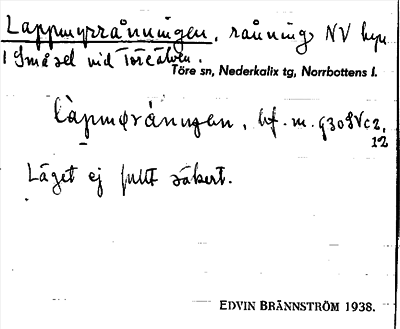 Lappmyrrånningen, rånning NV hyn
i Småsel vid Töreälven.
Töre sn, Nederkalix tg, Norrbottens l.
làpmørånnɩŋen, bf. m. g308Vc2,
12
Läget ej fullt säkert.
EDVIN BRÄNNSTRÖM 1938.